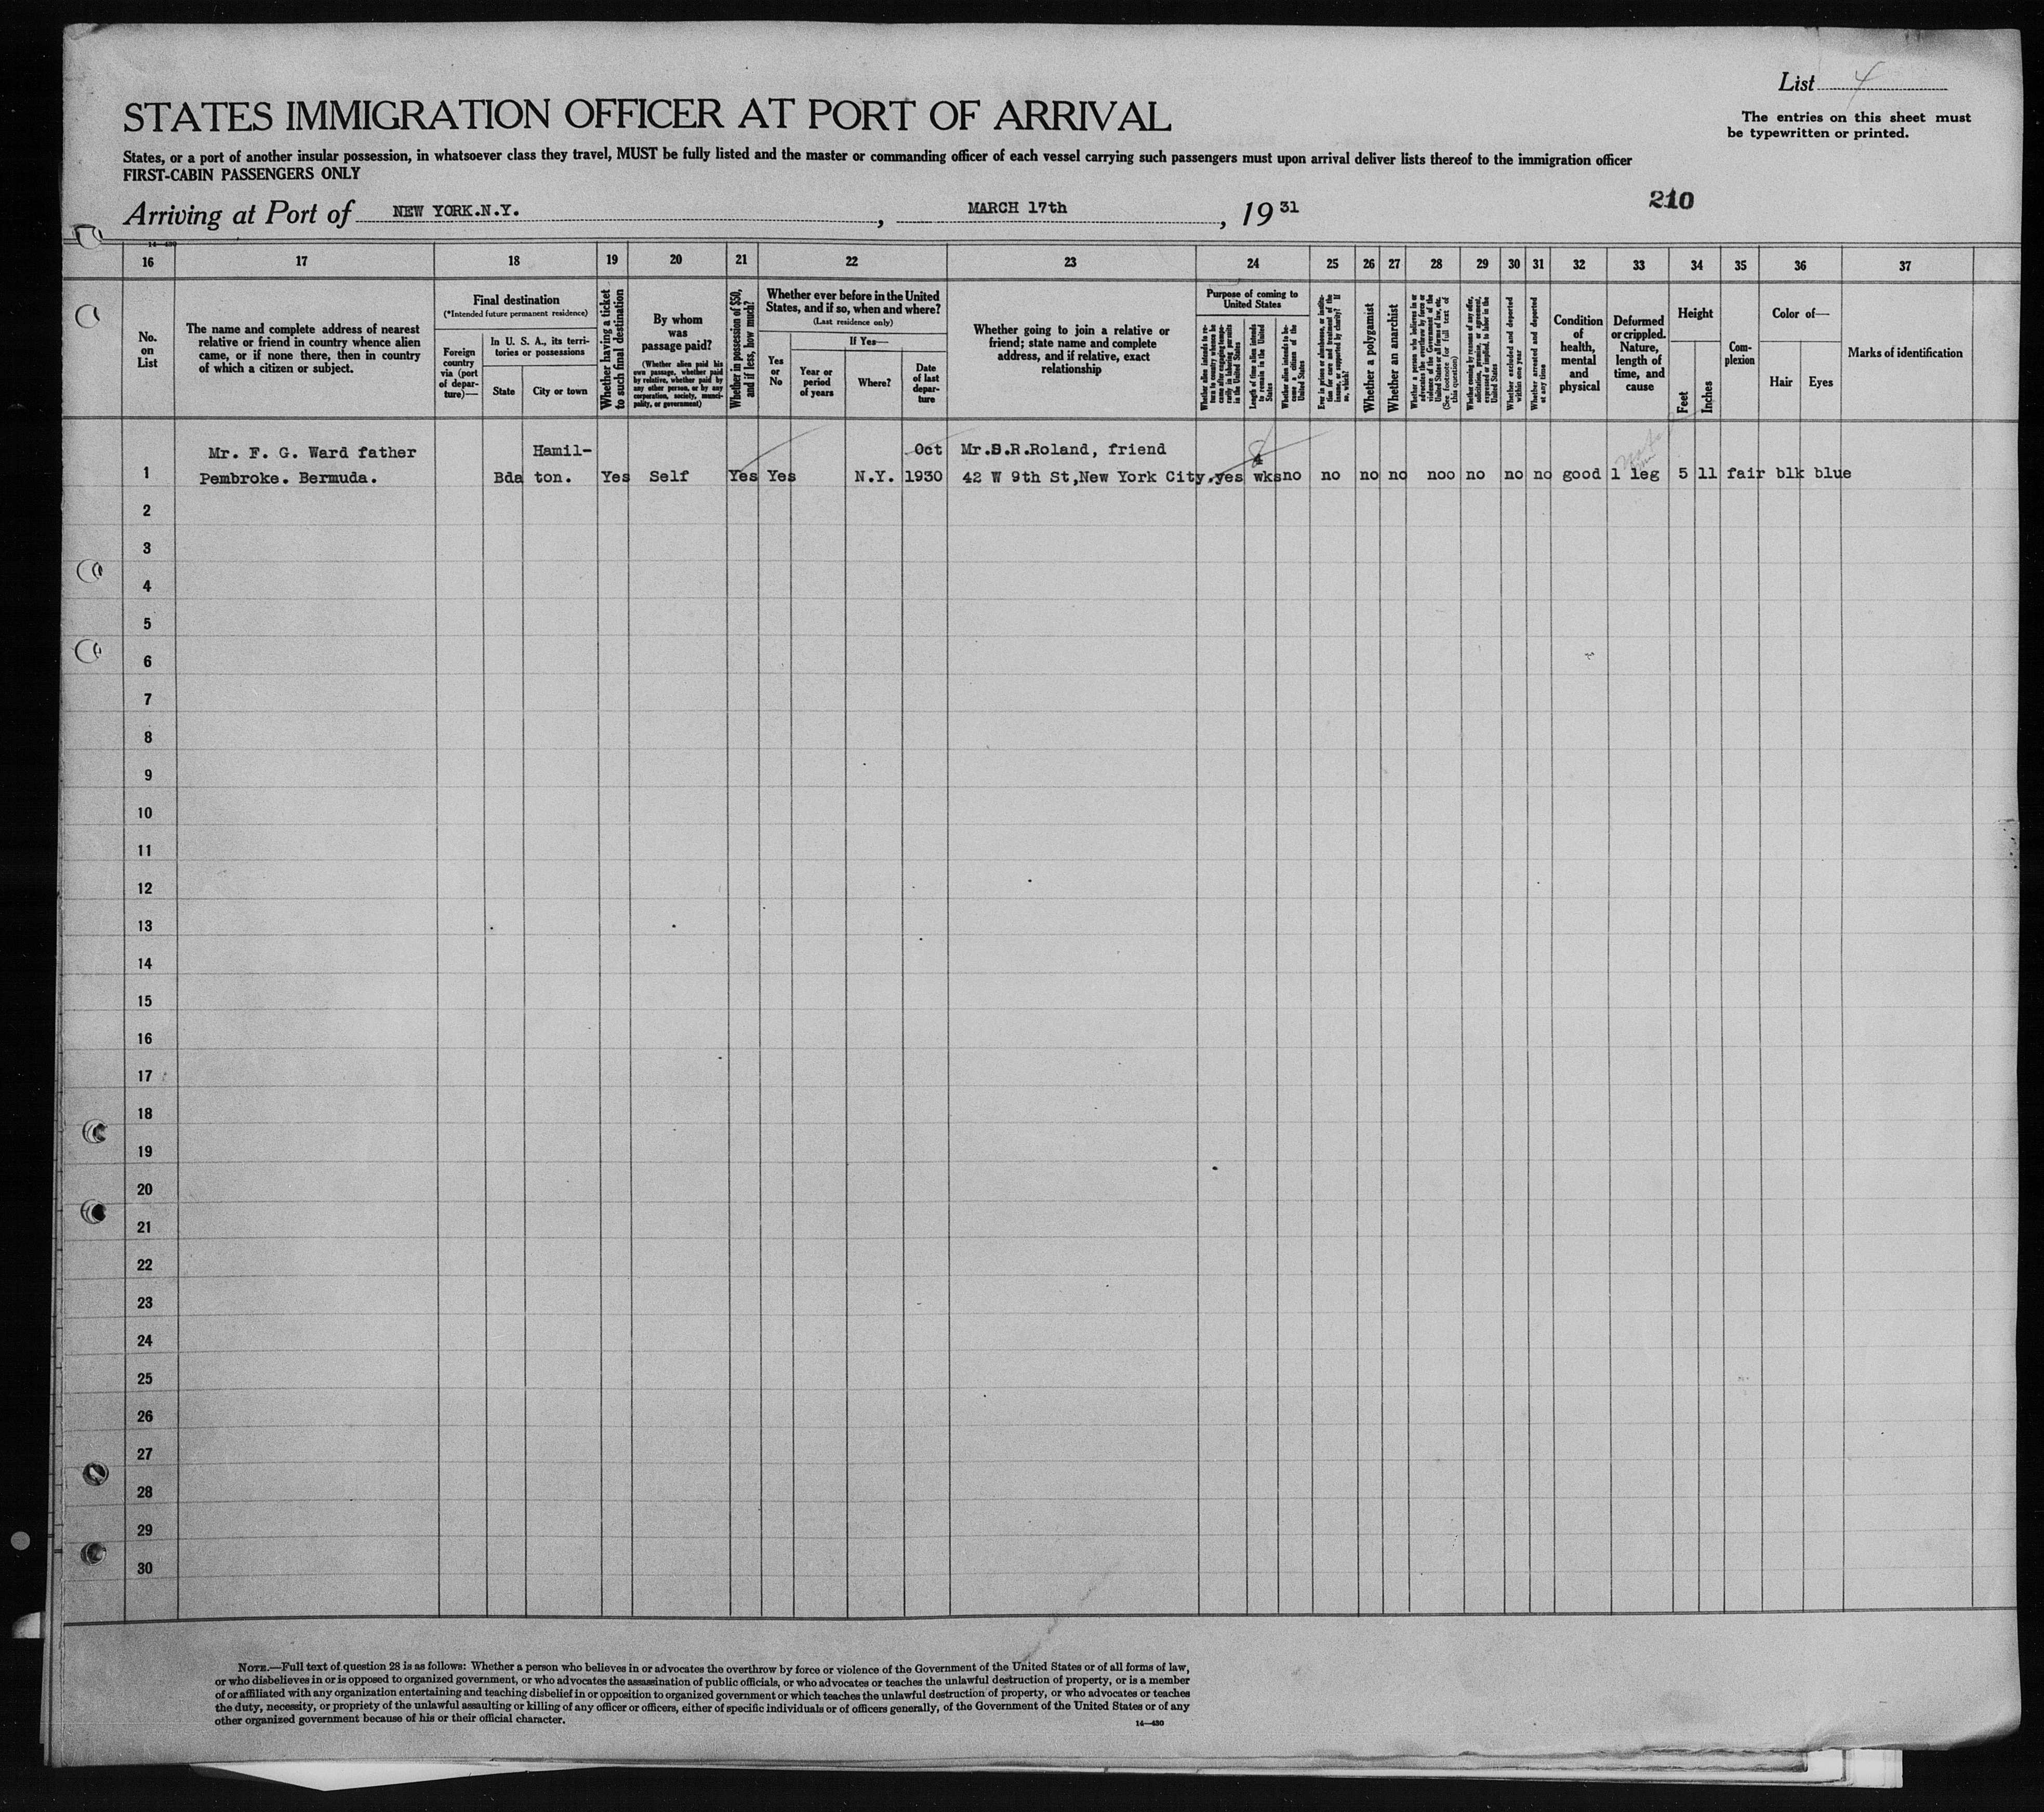 List 4
The entries on this sheet must
be typewritten or printed.
STATES IMMIGRATION OFFICER AT PORT OF ARRIVAL
States, or a port of another insular possession, in whatsoever class they travel, MUST be fully listed and the master or commanding officer of each vessel carrying such passengers must upon arrival deliver lists thereof to the immigration officer
FIRST-CABIN PASSENGERS ONLY
210
Arriving at Port of NEW YORK.N.Y. , MARCH 17th , 19 31
14—430
16 17 18 19 20 21 22 23 24 25 26 27 28 29 30 31 32 33 34 35 36 37
No.
on
List
The name and complete address of nearest
relative or friend in country whence alien
came, or if none there, then in country
of which a citizen or subject.
Final destination
(*Intended future permanent residence)
Foreign
country
via (port
of depar-
ture)—
In U. S. A., its terri-
tories or possessions
State
City or town
Whether having a ticket
to such final destination
By whom
was
passage paid?
(Whether alien paid his
own passage, whether paid
by relative, whether paid by
any other person, or by any
corporation, society, munici-
pality, or government)
Whether in possession of $50,
and if less, how much?
Whether ever before in the United
States, and if so, when and where?
(Last residence only)
Yes
or
No
If Yes—
Year or
period
of years
Where?
Date
of last
depar-
ture
Whether going to join a relative or
friend; state name and complete
address, and if relative, exact
relationship
Purpose of coming to
United States
Whether alien intends to re-
turn to country whence he
came after engaging tempo-
rarily in laboring pursuits
in the United States
Length of time alien intends
to remain in the United
States
Whether alien intends to be-
come a citizen of the
United States
Ever in prison or almshouse, or institu-
tion for care and treatment of the
insane, or supported by charity? If
so, which?
Whether a polygamist
Whether an anarchist
Whether a person who believes in or
advocates the overthrow by force or
violence of the Government of the
United States or all forms of law, etc.
(See footnote for full text of
this question)
Whether coming by reason of any offer,
solicitation, promise, or agreement,
expressed or implied, to labor in the
United States
Whether excluded and deported
within one year
Whether arrested and deported
at any time
Condition
of
health,
mental
and
physical
Deformed
or crippled.
Nature,
length of
time, and
cause
Height
Feet
Inches
Com-
plexion
Color of—
Hair
Eyes
Marks of identification
Mr. F. G. Ward father Hamil- Oct Mr.S.R.Roland, friend 8 4
1 Pembroke. Bermuda. Bda ton. Yes Self Yes Yes N.Y. 1930 42 W 9th St,New York City. yes wks no no no no noo no no no good 1 leg 5 11 fair blk blue
2
3
4
5
6
7
8
9
10
11
12
13
14
15
16
17
18
19
20
21
22
23
24
25
26
27
28
29
30
NOTE.—Full text of question 28 is as follows: Whether a person who believes in or advocates the overthrow by force or violence of the Government of the United States or of all forms of law,
or who disbelieves in or is opposed to organized government, or who advocates the assassination of public officials, or who advocates or teaches the unlawful destruction of property, or is a member
of or affiliated with any organization entertaining and teaching disbelief in or opposition to organized government or which teaches the unlawful destruction of property, or who advocates or teaches
the duty, necessity, or propriety of the unlawful assaulting or killing of any officer or officers, either of specific individuals or of officers generally, of the Government of the United States or of any
other organized government because of his or their official character.
14—430